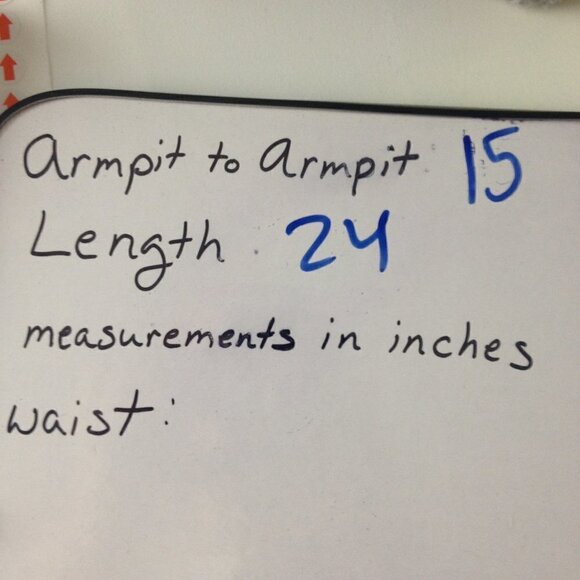 Armpit to Armpit 15
Length 24
measurements in inches
waist: